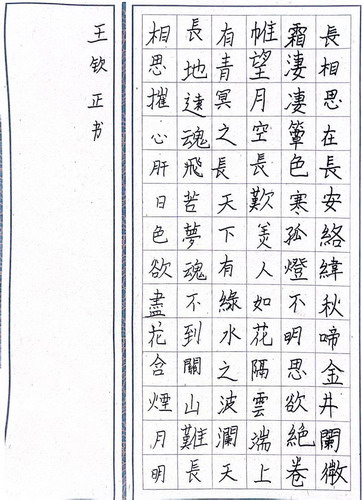 長相思在長安絡緯秋啼金井闌微
霜淒凄簟色寒孤燈不明思欲絕卷
帷望月空長歎美人如花隔雲端上
有青冥之長天下有綠水之波瀾天
長地遠魂飛苦夢魂不到關山難長
相思摧心肝日色欲盡花含煙月明
王钦正书